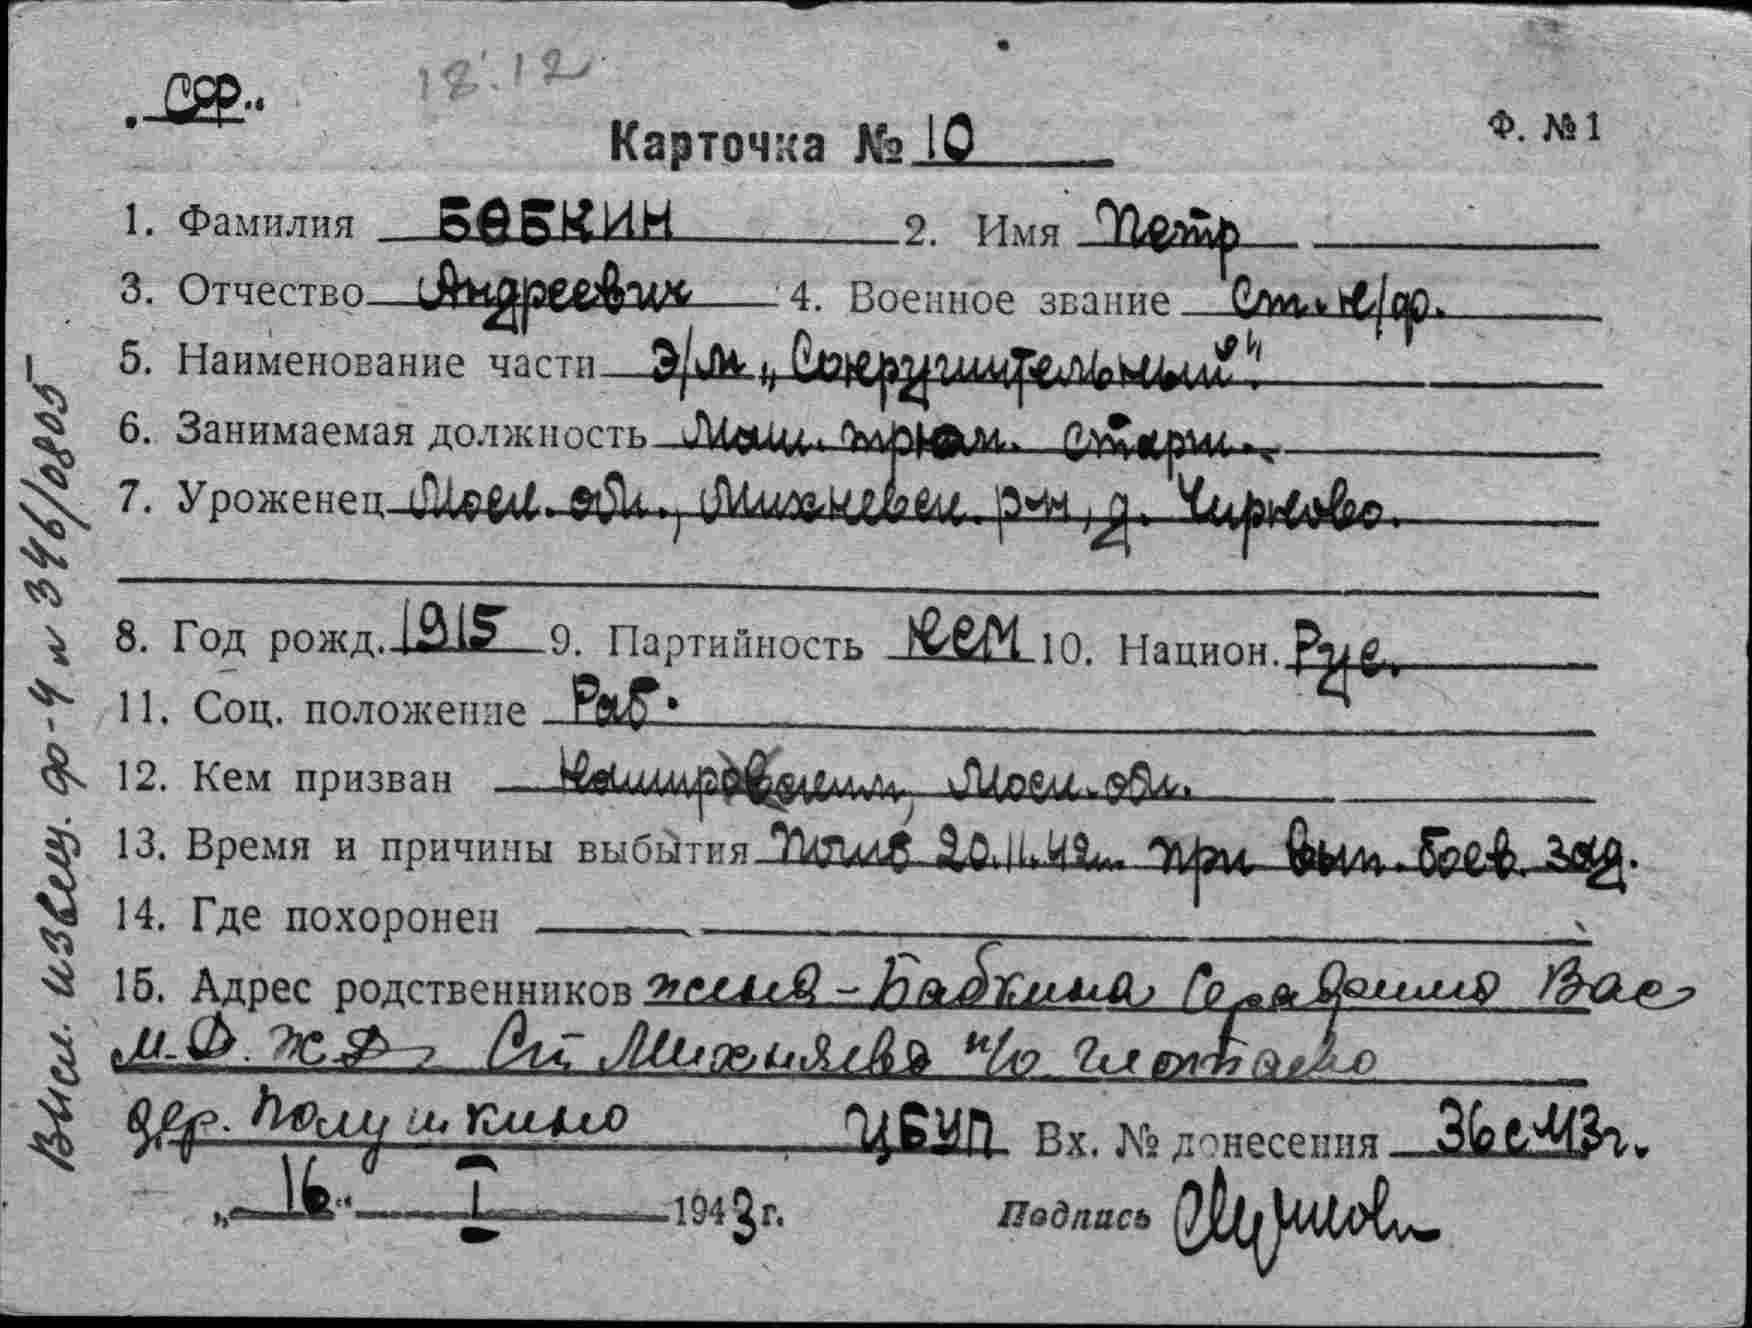 СФ
18.12
Карточка № 10
Ф. № 1
1. Фамилия БАБКИН 2. Имя Петр
3. Отчество Андреевич 4. Военное звание Ст. к/ф.
5. Наименование части Э/м „Сокрушительный".
6. Занимаемая должность Маш. трюм. старш.
7. Уроженец Моск. обл., Михневск. р-н, д. Чирково.
8. Год рожд. 1915 9. Партийность КСМ 10. Национ. Рус.
11. Соц. положение Раб.
12. Кем призван Каширским, Моск. обл.
13. Время и причины выбытия Погиб 20.11.42г. при вып. боев. зад.
14. Где похоронен
15. Адрес родственников жена - Бабкина Серафима Вас
М. Д. ЖД Ст Михнево п/о
дер. Полушкино ЦБУП Вх. № донесения 36с 43г.
„16" I 1943 г. Подпись
Высл. извещ. ф-4 N 346/0805